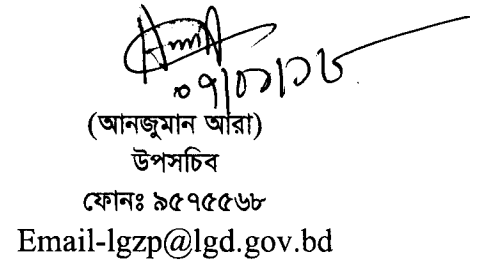 (আনজুমান আরা)
উপসচিব
ফোনঃ ৯৫৭৫৫৬৮
Email-lgzp@lgd.gov.bd